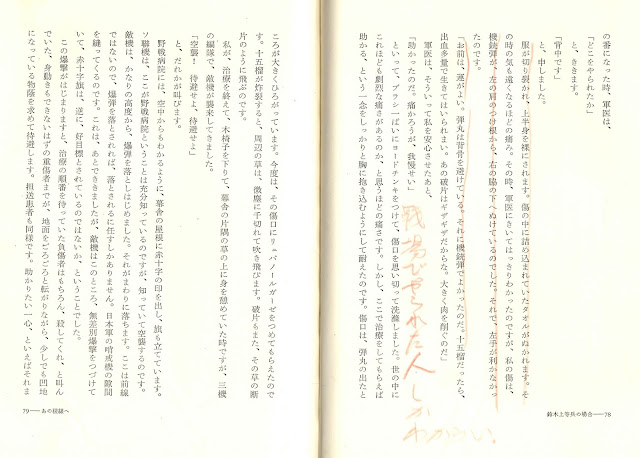 の番になった時、軍医は、
「どこをやられたか」
と、ききます。
「背中です」
と、申しました。
服が切り裂かれ、上半身を裸にされます。傷の中に詰め込まれていたタオルがぬかれます。そ
の時の気も遠くなるほどの痛さ。その時、軍医にきいてはっきりわかったのですが、私の傷は、
機銃弾が、左の肩のつけ根から、右の脇の下へぬけているのでした。それで、左手が利かなかっ
たのです。
「お前は、運がよい。弾丸は背骨を避けている。それに機銃弾でよかったのだ。十五榴だったら、
出血多量で生きてはいられまい。あの破片はギザギザだからな。大きく肉を削ぐのだ」
軍医は、そういって私を安心させたあと、
「助かったのだ。痛かろうが、我慢せい」
といって、ブラシ一ぱいにヨードチンキをつけて、傷口を思い切って洗滌しました。世の中に
これほども劇烈な痛さがあるのか、と思うほどの痛さです。しかし、ここで治療をしてもらえば
助かる、という一念をしっかりと胸に抱き込むようにして耐えたのです。傷口は、弾丸の出たと
戦場でやられた人しか
わからない。
鈴木上等兵の場合——78
ころが大きくひろがっています。今度は、その傷口にリバノールガーゼをつめてもらえたので
す。十五榴が炸裂すると、周辺の草は、微塵に千切れて吹き飛びます。破片もまた、その草の断
片のように飛ぶのです。
私が、治療を終えて、木椅子を下りて、幕舎の片隅の草の上に身を憩めていた時ですが、三機
の編隊で、敵機が襲来してきました。
「空襲！　待避せよ、待避せよ」
と、だれかが叫びます。
野戦病院には、空中からもわかるように、幕舎の屋根に赤十字の印を出し、旗も立てています。
ソ聯機は、ここが野戦病院ということは充分知っているのですが、知っていて空襲するのです。
敵機は、かなりの高度から、爆弾を落としはじめました。それがまわりに落ちます。ここは前線
ではないので、爆弾を落とされれば、落とされるに任すしかありません。日本軍の哨戒機の隙間
を縫ってくるのです。これは、あとできききましたが、敵機はこのところ、無差別爆撃をつづけて
いて、赤十字旗は、逆に、好目標とされているのではないか、ということでした。
この爆撃がはじまりますと、治療の順番を待っていた負傷者はもちろん、殺してくれ、と叫ん
でいた、身動きもできないはずの重傷者までが、地面をごろごろと転がりながら、少しでも凹地
になっている物蔭を求めて待避します。担送患者も同様です。助かりたい一心、といえばそれま
79——あの稜線へ